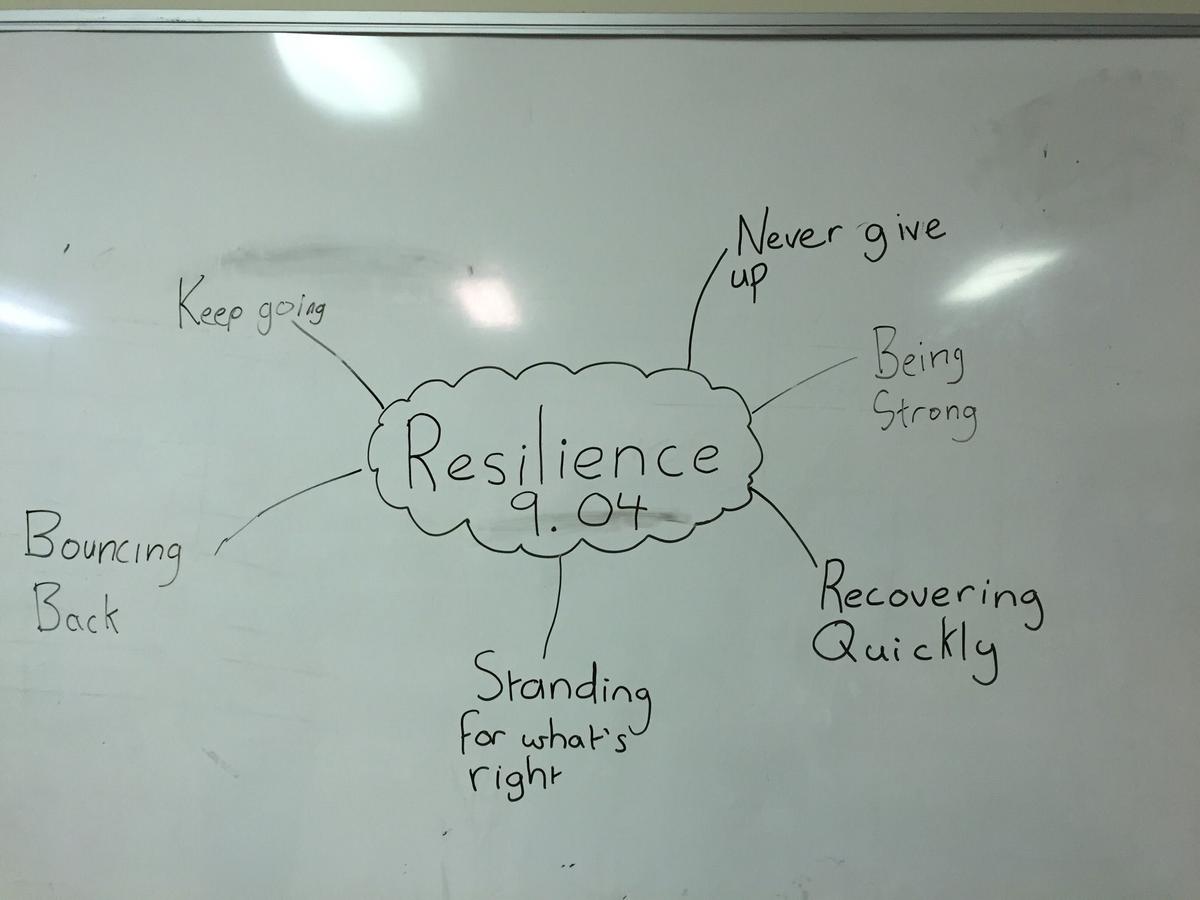 Never give
up
Keep going
Being
Strong
Resilience
9.04
Bouncing
Back
Recovering
Quickly
Standing
for what's
right